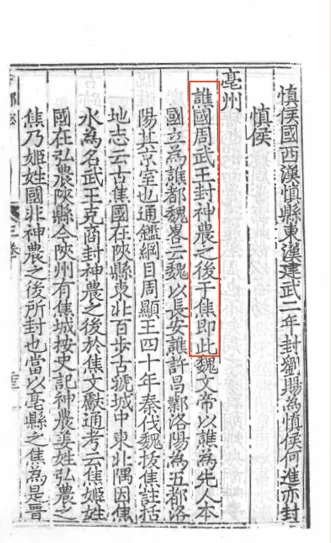 慎侯國西漢慎縣東漢建武二年封劉賜為慎侯何進亦封
慎侯
亳州
譙國周武王封神農之後于焦即此魏文帝以譙為先人本
國立為譙都魏畧云魏以長安譙許昌鄴洛陽為五都洛
陽其京室也通鑑綱目周顯王四十年秦伐魏拔焦註括
地志云古焦國在陝縣東北百步古虢城中東北隅因焦
水為名武王克商封神農之後於焦文獻通考云焦姬姓
國在弘農陝縣今陝州有焦城按史記神農姜姓弘農之
焦乃姬姓國非神農之後所封也當以亳縣之焦為是晉
三卷